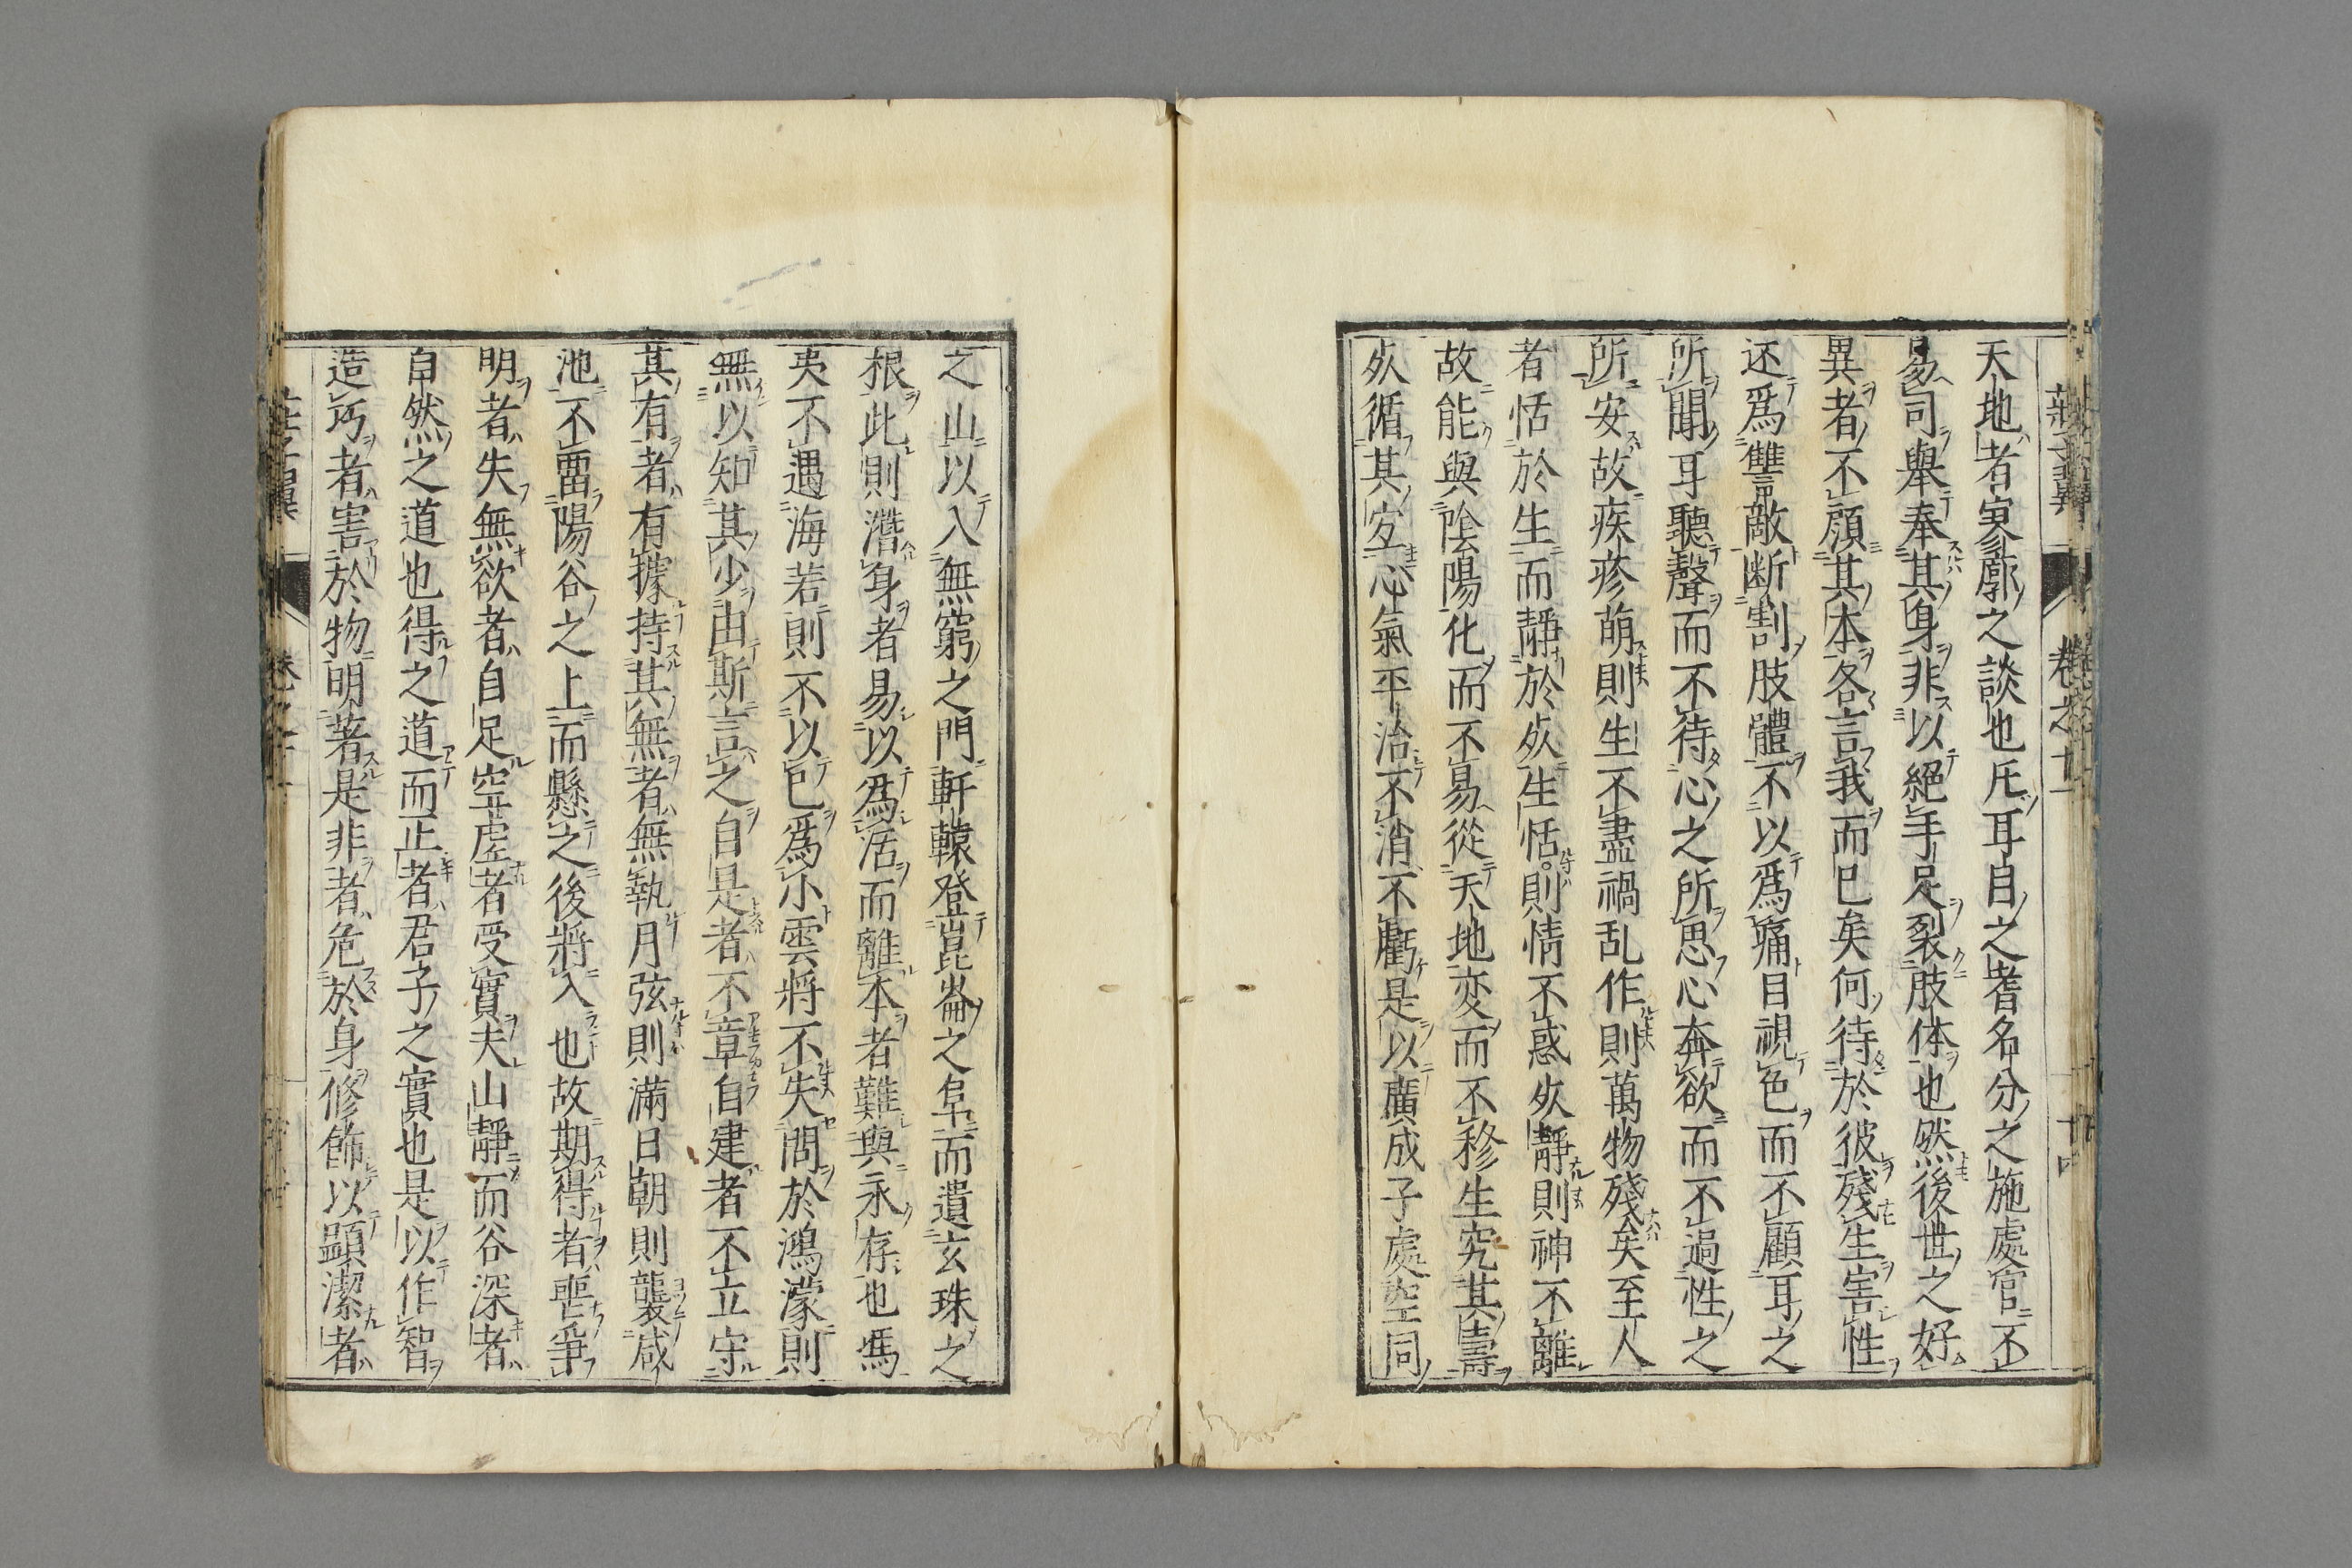 天地者寥廓之談也厇耳自之耆名分之施處官不
易司舉奉其身非以絕手足裂肢体也然後世之好
異者不顔其本各言我而已矣何待於彼殘生害性
还爲讐敵断割肢體不以爲痛目視色而不顧耳之
所聞耳聽聲而不待心之所思心奔欲而不過性之
所安故疾疹萌則生不盡禍乱作則萬物殘矣至人
者恬於生而靜於死生恬則情不惑死靜則神不離
故能與陰陽化而不易從天地变而不移生究其壽
死循其宜心氣平治不消不虧是以廣成子處空同
之山以入無窮之門軒轅登崑崙之阜而遺玄珠之
根此則潛身者易以爲活而離本者難與永存也馮
夷不遇海若則不以已爲小雲將不失問於鴻濛則
無以知其少由斯言之自是者不章自建者不立守
其有者有據持其無者無執月弦則滿日朝則襲咸
池不畱陽谷之上而懸之後將入也故期得者喪爭
明者失無欲者自足空虛者受實夫山靜而谷深者
自然之道也得之道而正者君子之實也是以作智
造巧者害於物明著是非者危於身修飾以顕潔者